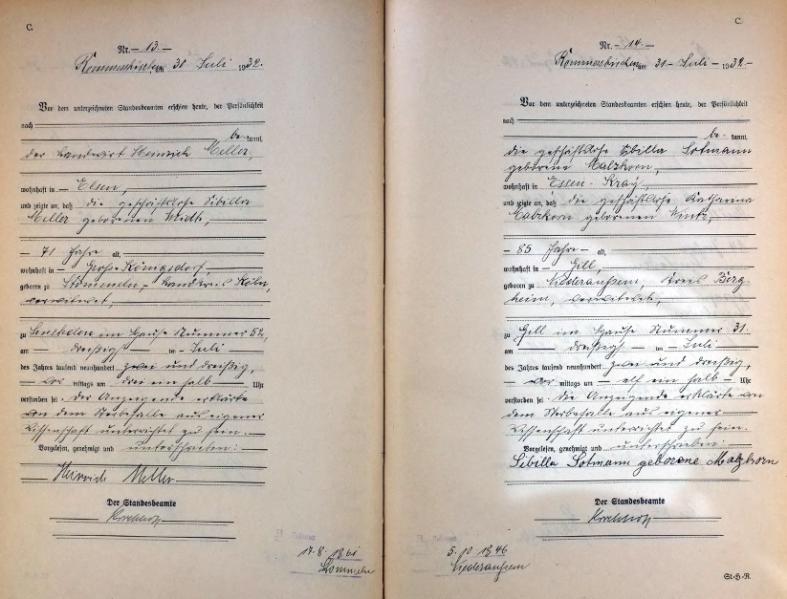 C.
Nr. 13.
Rommerskirchen am 31 Juli 1932.
Vor dem unterzeichneten Standesbeamten erschien heute, der Persönlichkeit
nach
be kannt,
der Landwirt Heinrich Meller,
wohnhaft in Elsen,
und zeigte an, daß die geschäftslose Sibilla
Meller geborenen
71 Jahre alt,
wohnhaft in Groß-Königsdorf,
geboren zu Stommeln, Landkreis Köln,
verwitwet,
zu im Hause Nummer 52,
am dreißigsten Juli
des Jahres tausend neunhundert zwei und dreißig,
vor mittags um drei ein halb Uhr
verstorben sei. Der Anzeigende erklärte
von dem Sterbefalle aus eigener
Wissenschaft unterrichtet zu sein.
Vorgelesen, genehmigt und unterschrieben:
Heinrich Meller
Der Standesbeamte
17.8.1861
Stommeln
C.
Nr. 14.
Rommerskirchen am 31 Juli 1932
Vor dem unterzeichneten Standesbeamten erschien heute, der Persönlichkeit
nach
be kannt,
die geschäftslose Sibilla Lotmann
geborene Malzkorn,
wohnhaft in Essen-Kray,
und zeigte an, daß die geschäftslose Katharina
Malzkorn geborenen
85 Jahre alt,
wohnhaft in Gill,
geboren zu Niederaußem, Kreis Berg
heim, verwitwet,
zu Gill im Hause Nummer 31
am dreißigsten Juli
des Jahres tausend neunhundert zwei und dreißig,
vor mittags um elf ein halb Uhr
verstorben sei. Die Anzeigende erklärte von
dem Sterbefalle aus eigener
Wissenschaft unterrichtet zu sein.
Vorgelesen, genehmigt und unterschrieben:
Sibilla Lotmann geborene Malzkorn
Der Standesbeamte
5.10.1846
Niederaußem
St-H-R.